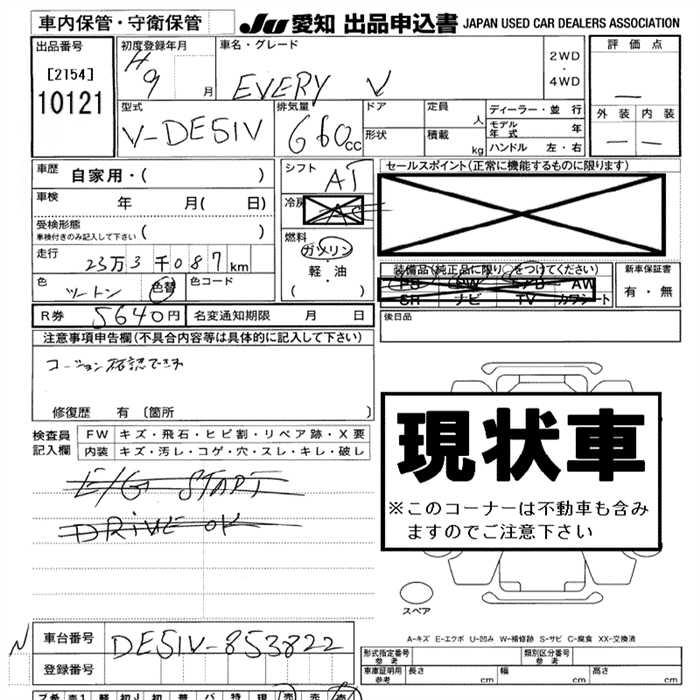 車内保管・守衛保管
JU 愛知 出品申込書 JAPAN USED CAR DEALERS ASSOCIATION
出品番号
[2154]
10121
初度登録年月
H9 月
車名・グレード
EVERY V
2WD
・
4WD
評価点
—
外装 内装
— —
型式
V-DE51V
排気量
660cc
ドア
定員 人
形状
積載 kg
ディーラー・並 行
モデル年式 年
ハンドル 左・右
車歴
自家用・( )
車検 年 月( 日)
受検形態
車検付きのみ記入して下さい ( )
走行
23万3千087km
色
ツートン
色替
色コード
シフト
AT
冷房
AC
燃料
ガソリン
・
軽・油
( )
セールスポイント(正常に機能するものに限ります)
装備品(純正品に限り○をつけてください)
PS PW S/D AW
SR ナビ TV カワシート
新車保証書
有・無
R券 5640円
名変通知期限 月 日
後日品
注意事項申告欄(不具合内容等は具体的に記入して下さい)
コーション確認できず
修復歴 有〔箇所 〕
検査員
記入欄
FW キズ・飛石・ヒビ割・リペア跡・X要
内装 キズ・汚レ・コゲ・穴・スレ・キレ・破レ
E/G START
DRIVE OK
現状車
※このコーナーは不動車も含み
ますのでご注意下さい
スペア
A-キズ E-エクボ U-凹み W-補修跡 S-サビ C-腐食 XX-交換済
N
車台番号
DE51V-853822
登録番号
形式指定番号
参考
類別区分番号
参考
車庫証明用
参考
長さ cm
幅 cm
高さ cm